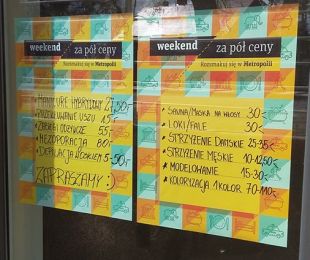 weekend za pół ceny
Rozsmakuj się w Metropolii
MANICURE HYBRYDOWY 27,50
PRZEKŁUWANIE USZU 15
ZABIEGI ODŻYWCZE 55
MEZOPORACJA 80
DEPILACJA WOSKIEM 5-50
ZAPRASZAMY :)
weekend za pół ceny
Rozsmakuj się w Metropolii
• SAUNA/MASKA NA WŁOSY 30
• LOKI/FALE 30
• STRZYŻENIE DAMSKIE 25-35
• STRZYŻENIE MĘSKIE 10-12,50
• MODELOWANIE 15-30
• KOLORYZACJA 1 KOLOR 70-110